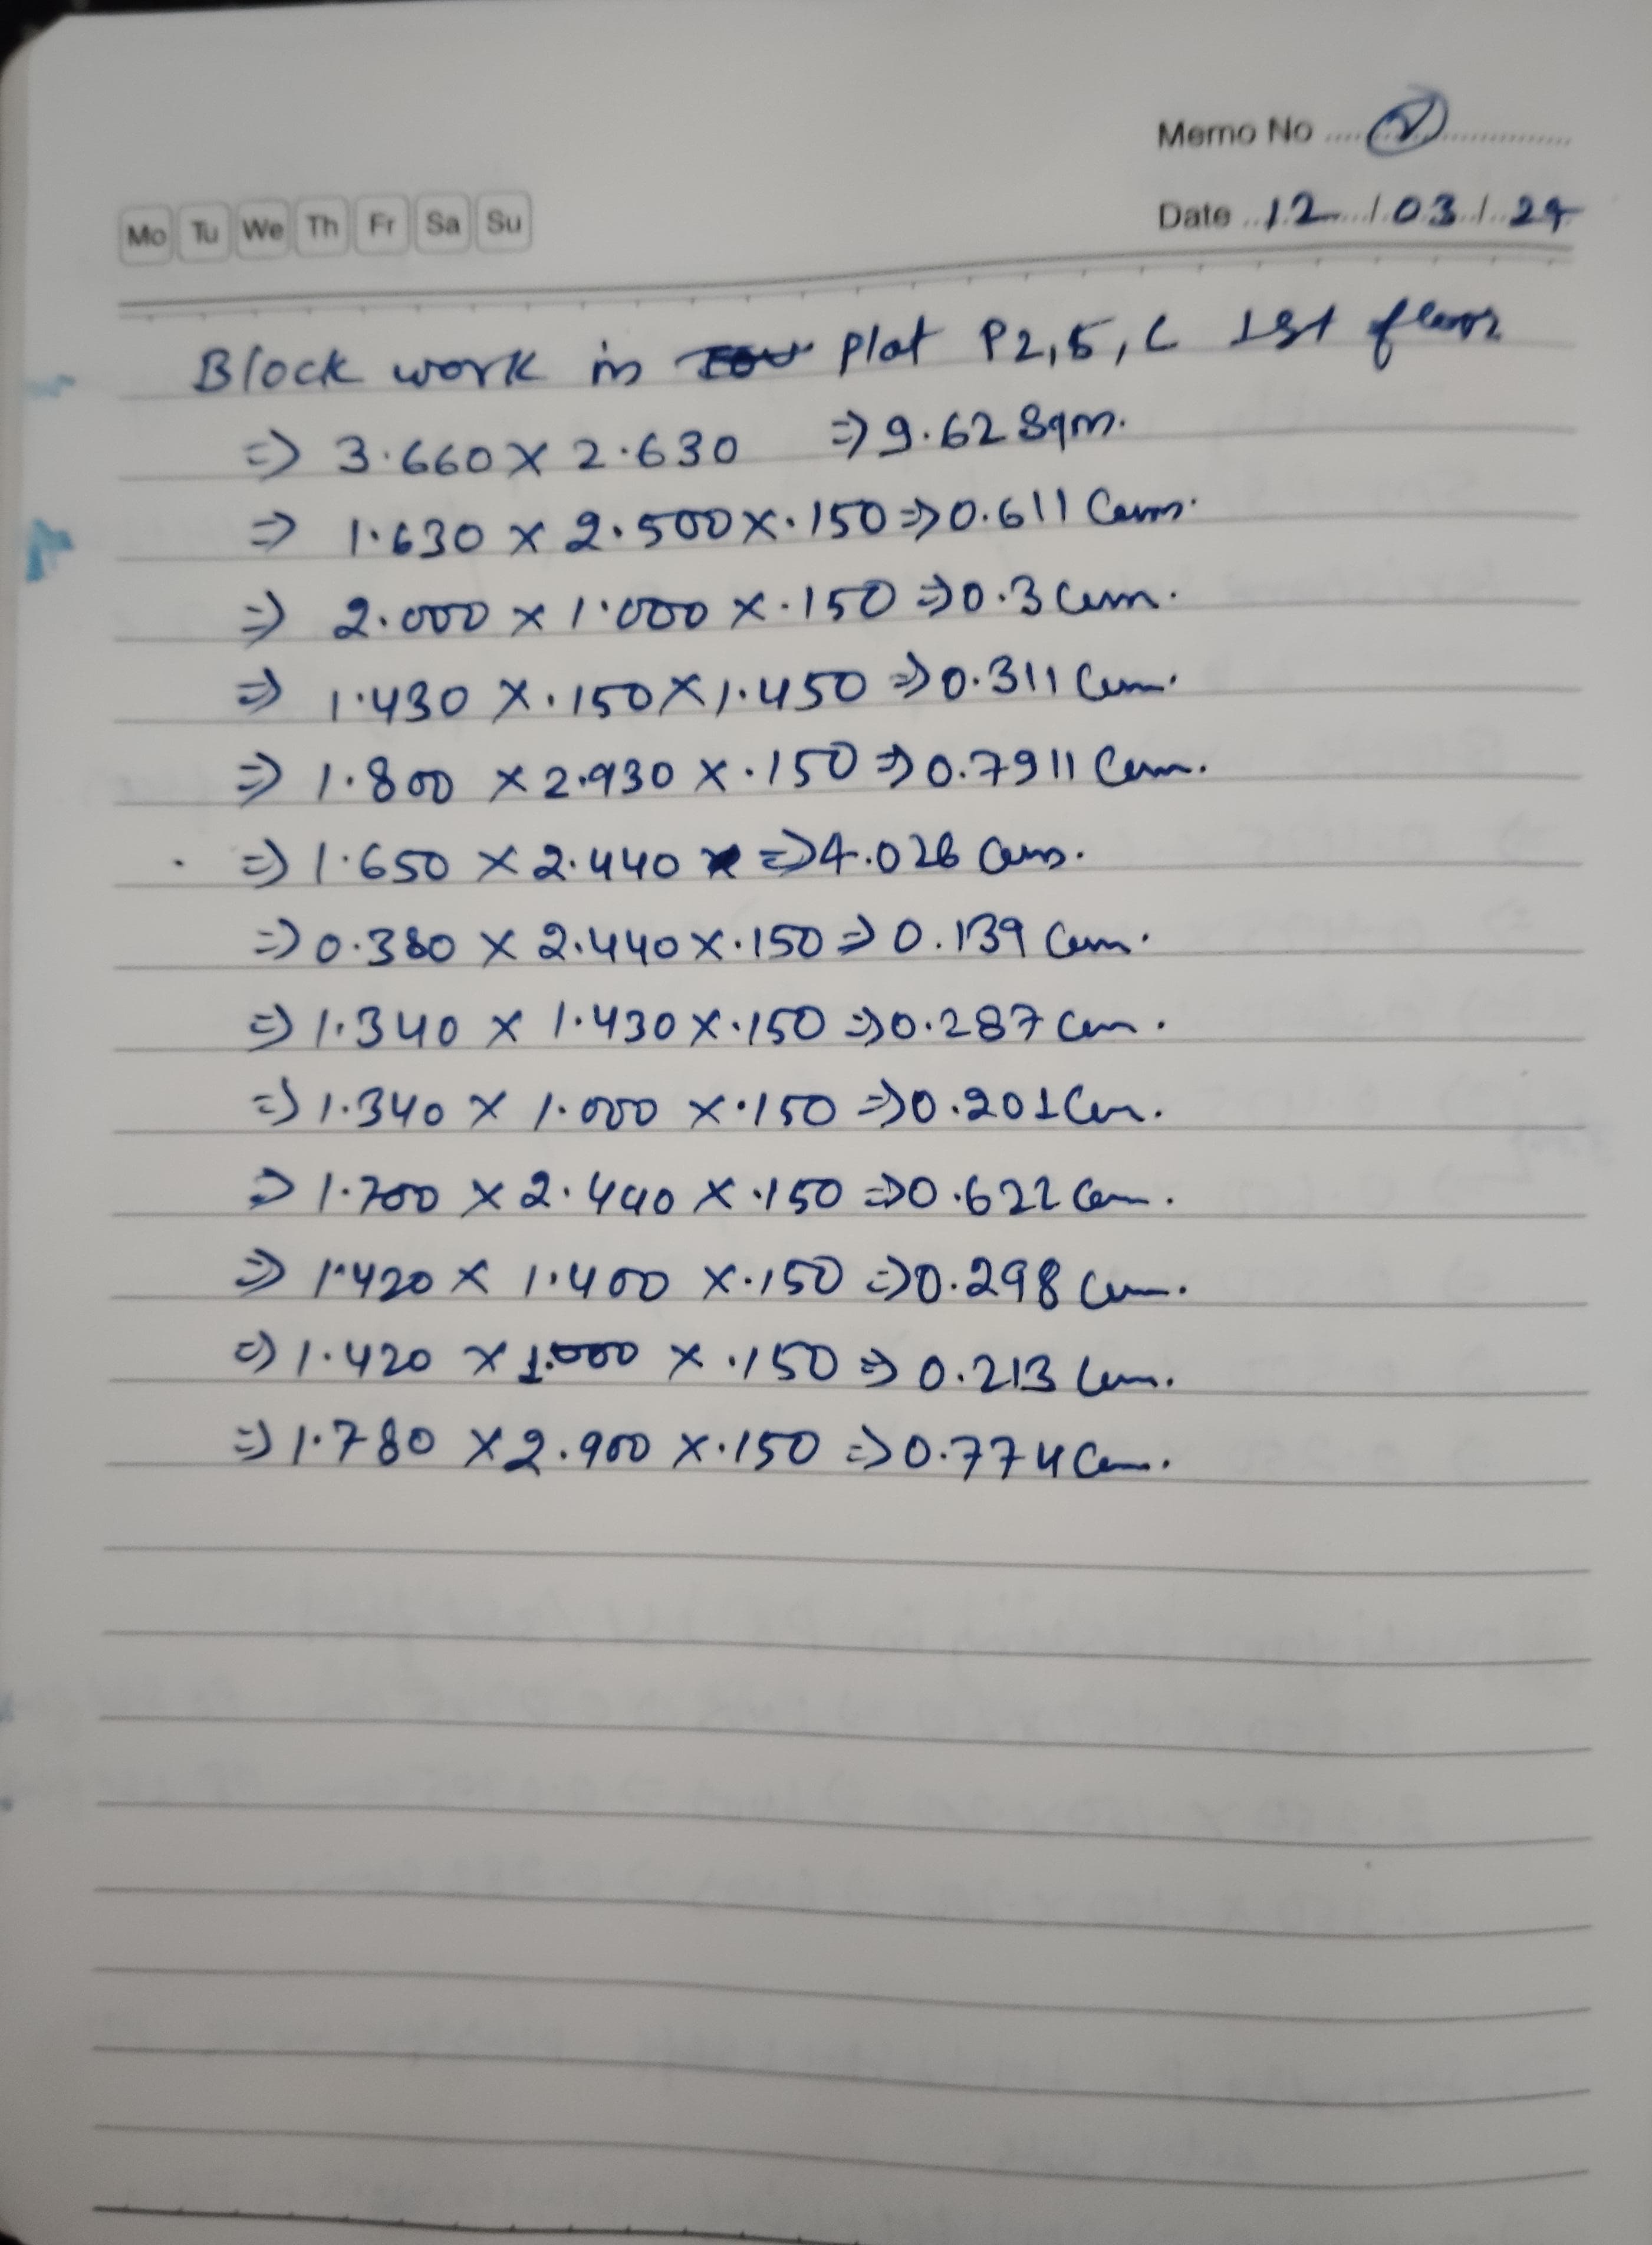 Memo No ..... 2 ..........
Mo Tu We Th Fr Sa Su
Date ..12../.03./..24
Block work in plot P2,5,C 1st floor
=> 3.660 x 2.630 => 9.62 Sqm.
=> 1.630 x 2.500 x .150 => 0.611 Cum.
=> 2.000 x 1.000 x .150 => 0.3 Cum.
=> 1.430 x .150 x 1.450 => 0.311 Cum.
=> 1.800 x 2.930 x .150 => 0.7911 Cum.
=> 1.650 x 2.440 => 4.026 Cum.
=> 0.380 x 2.440 x .150 => 0.139 Cum.
=> 1.340 x 1.430 x .150 => 0.287 Cum.
=> 1.340 x 1.000 x .150 => 0.201 Cum.
=> 1.700 x 2.440 x .150 => 0.622 Cum.
=> 1.420 x 1.400 x .150 => 0.298 Cum.
=> 1.420 x 1.000 x .150 => 0.213 Cum.
=> 1.780 x 2.900 x .150 => 0.774 Cum.